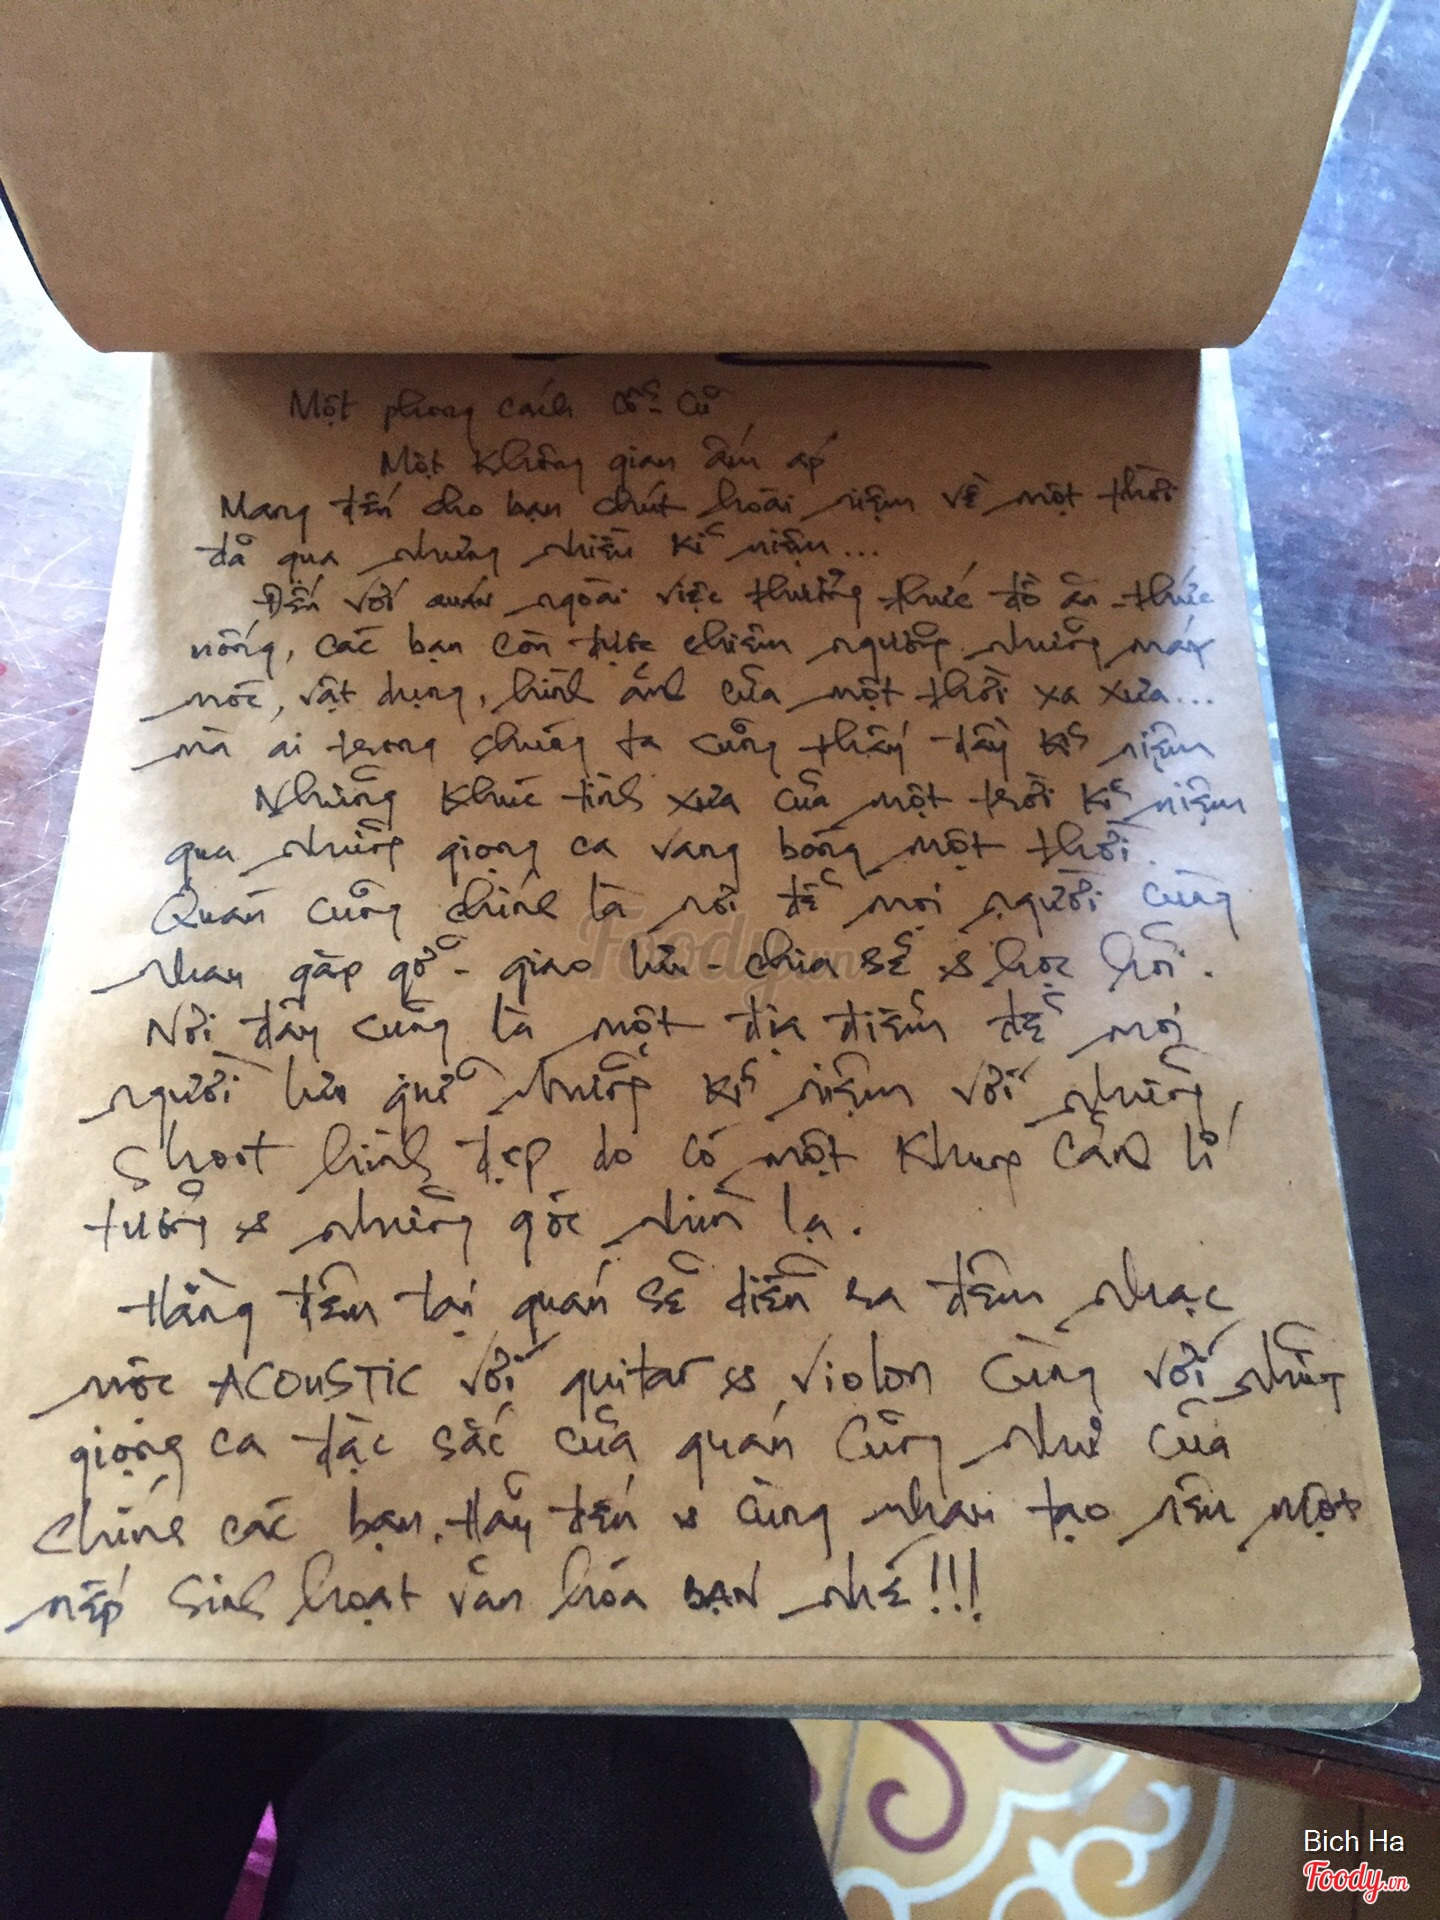 Một phong cách cổ - cũ
Một không gian ấm áp
Mang đến cho bạn chút hoài niệm về một thời
đã qua nhưng nhiều kỉ niệm...
Đến với quán ngoài việc thưởng thức đồ ăn - thức
uống, các bạn còn được chiêm ngưỡng những máy
móc, vật dụng, hình ảnh của một thời xa xưa...
mà ai trong chúng ta cũng thấy đầy kỉ niệm
Những khúc tình xưa của một trời kỉ niệm
qua những giọng ca vang bóng một thời.
Quán cũng chính là nơi để mọi người cùng
nhau gặp gỡ - giao lưu - chia sẻ & học hỏi.
Nơi đây cũng là một địa điểm để mọi
người lưu giữ những kỉ niệm với những
shoot hình đẹp do có một khung cảnh lí
tưởng & những góc nhìn lạ.
Hằng đêm tại quán sẽ diễn ra đêm nhạc
mộc ACOUSTIC với guitar & violon cùng với những
giọng ca đặc sắc của quán cũng như của
chính các bạn. Hãy đến & cùng nhau tạo nên một
nếp sinh hoạt văn hóa BẠN nhé!!!
Foody.vn
Bich Ha
Foody.vn